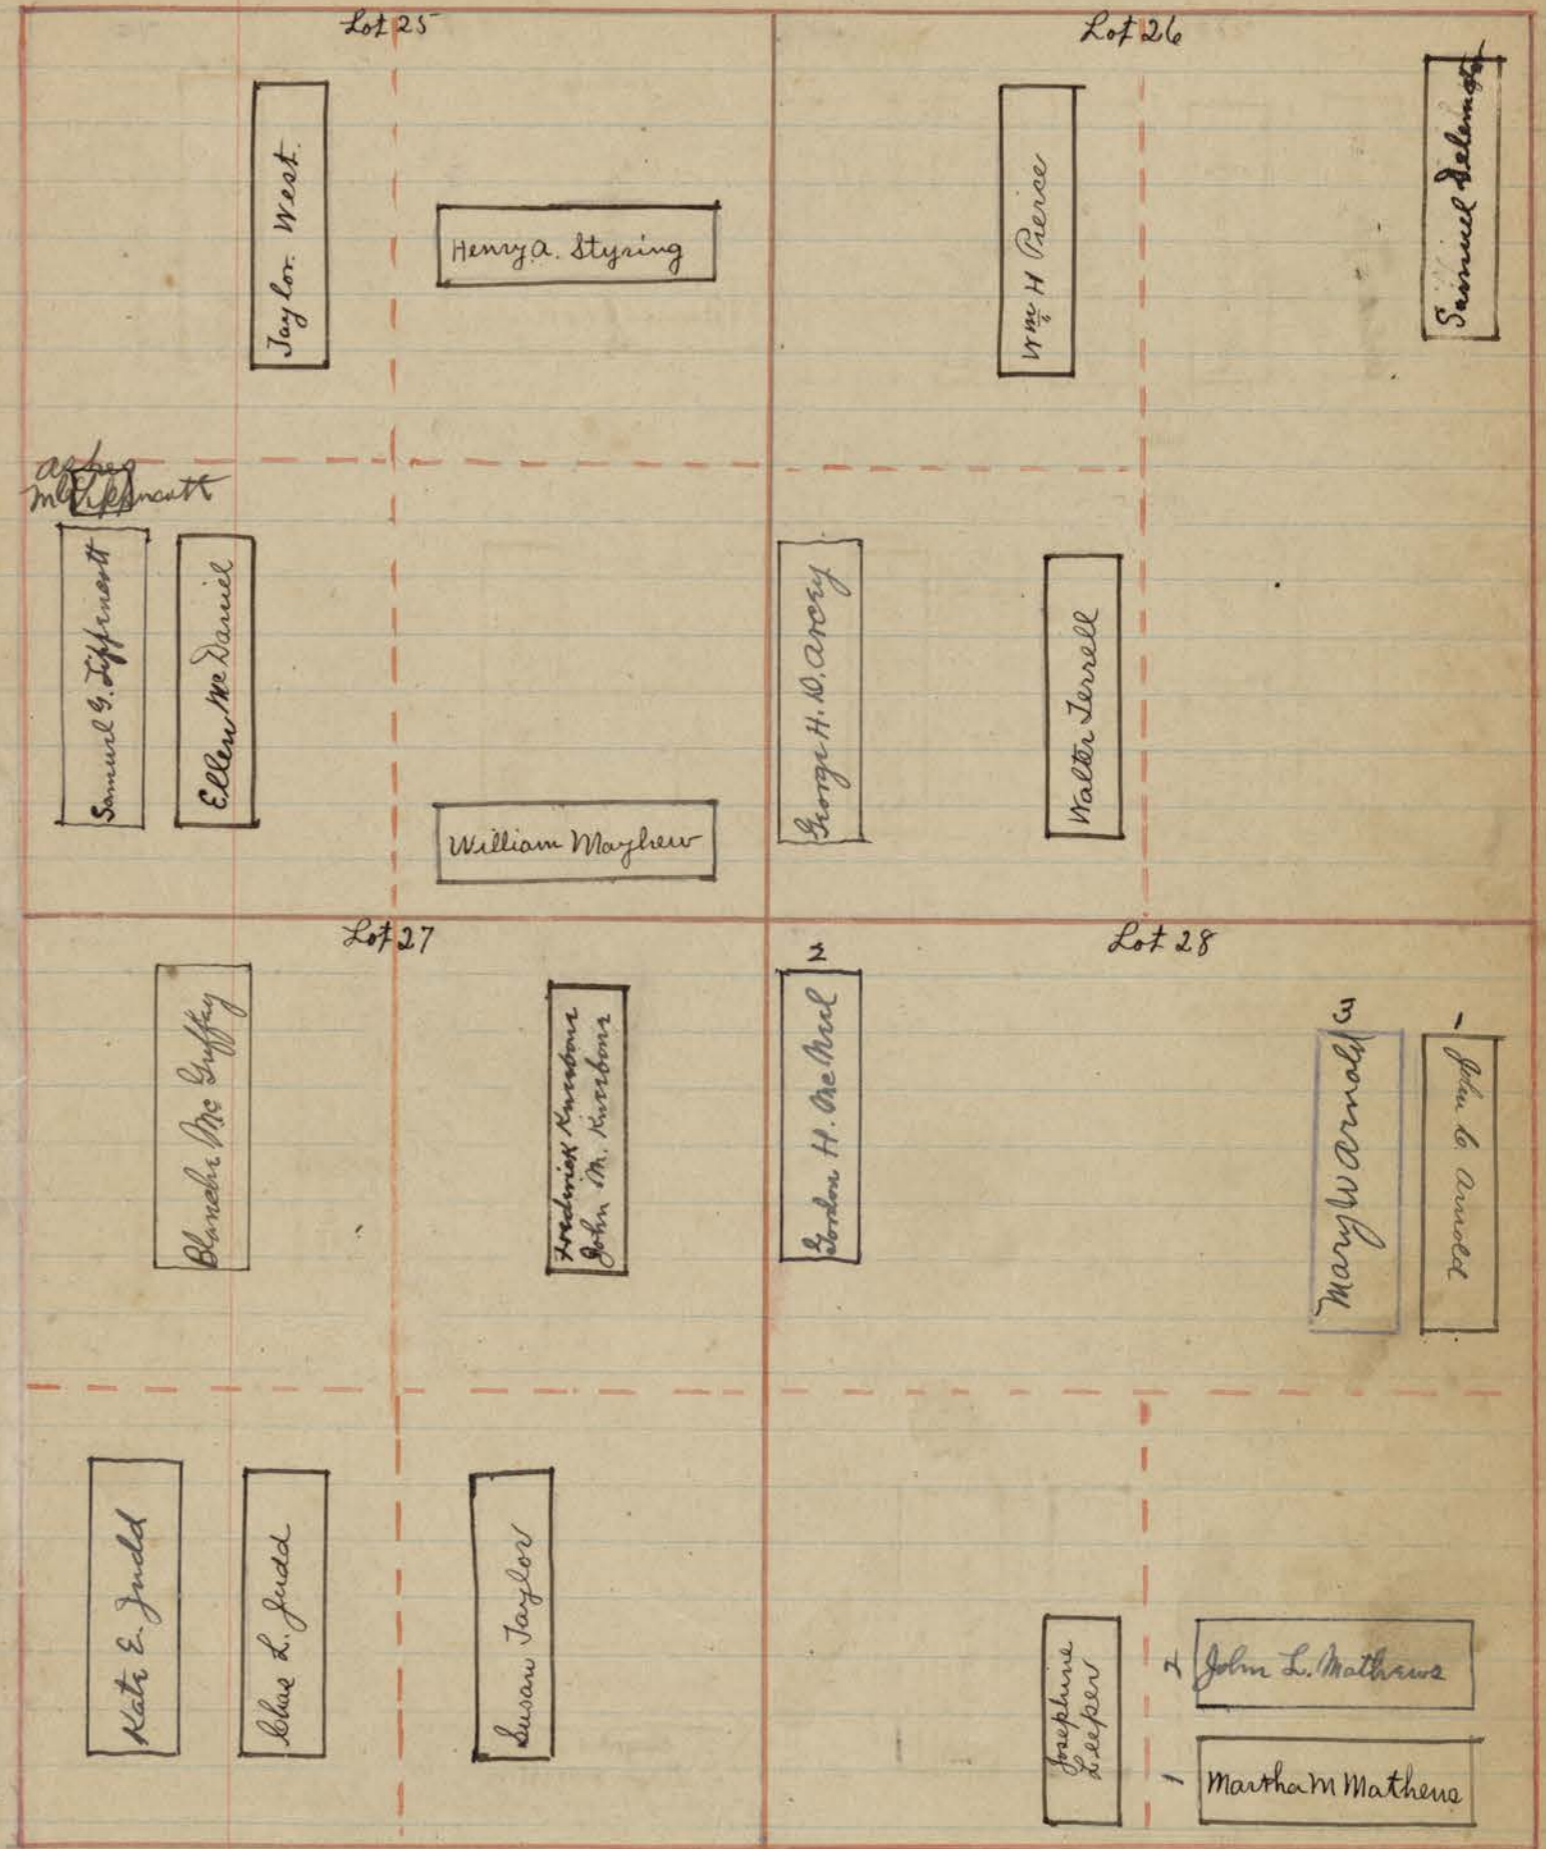 Lot 25
Taylor West.
Henry A. Styring
ashes
M Lippincott
Samuel G. Lippincott
Ellen McDaniel
William Mayhew
Lot 26
Wm H Pierce
Samuel
George H. D. Arcey
Walter Terrell
Lot 27
Blanche Mc Guffey
Frederick Knerbone
John M. Knerbone
Kate E. Judd
Chas L. Judd
Susan Taylor
Lot 28
2
Gordon H. McNeil
3
Mary W Arnold
1
John C. Arnold
Josephine
Leeper
2
John L. Mathews
1
Martha M Mathews